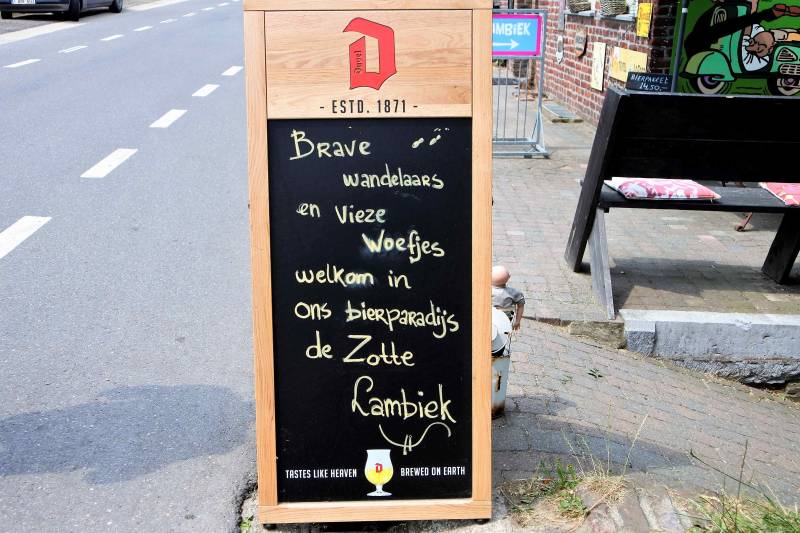 Duvel
D
- ESTD. 1871 -
Brave
wandelaars
en vieze
woefjes
welkom in
ons bierparadijs
de Zotte
Lambiek
TASTES LIKE HEAVEN
BREWED ON EARTH
MBIEK
BIERPAKKET
14,50,-